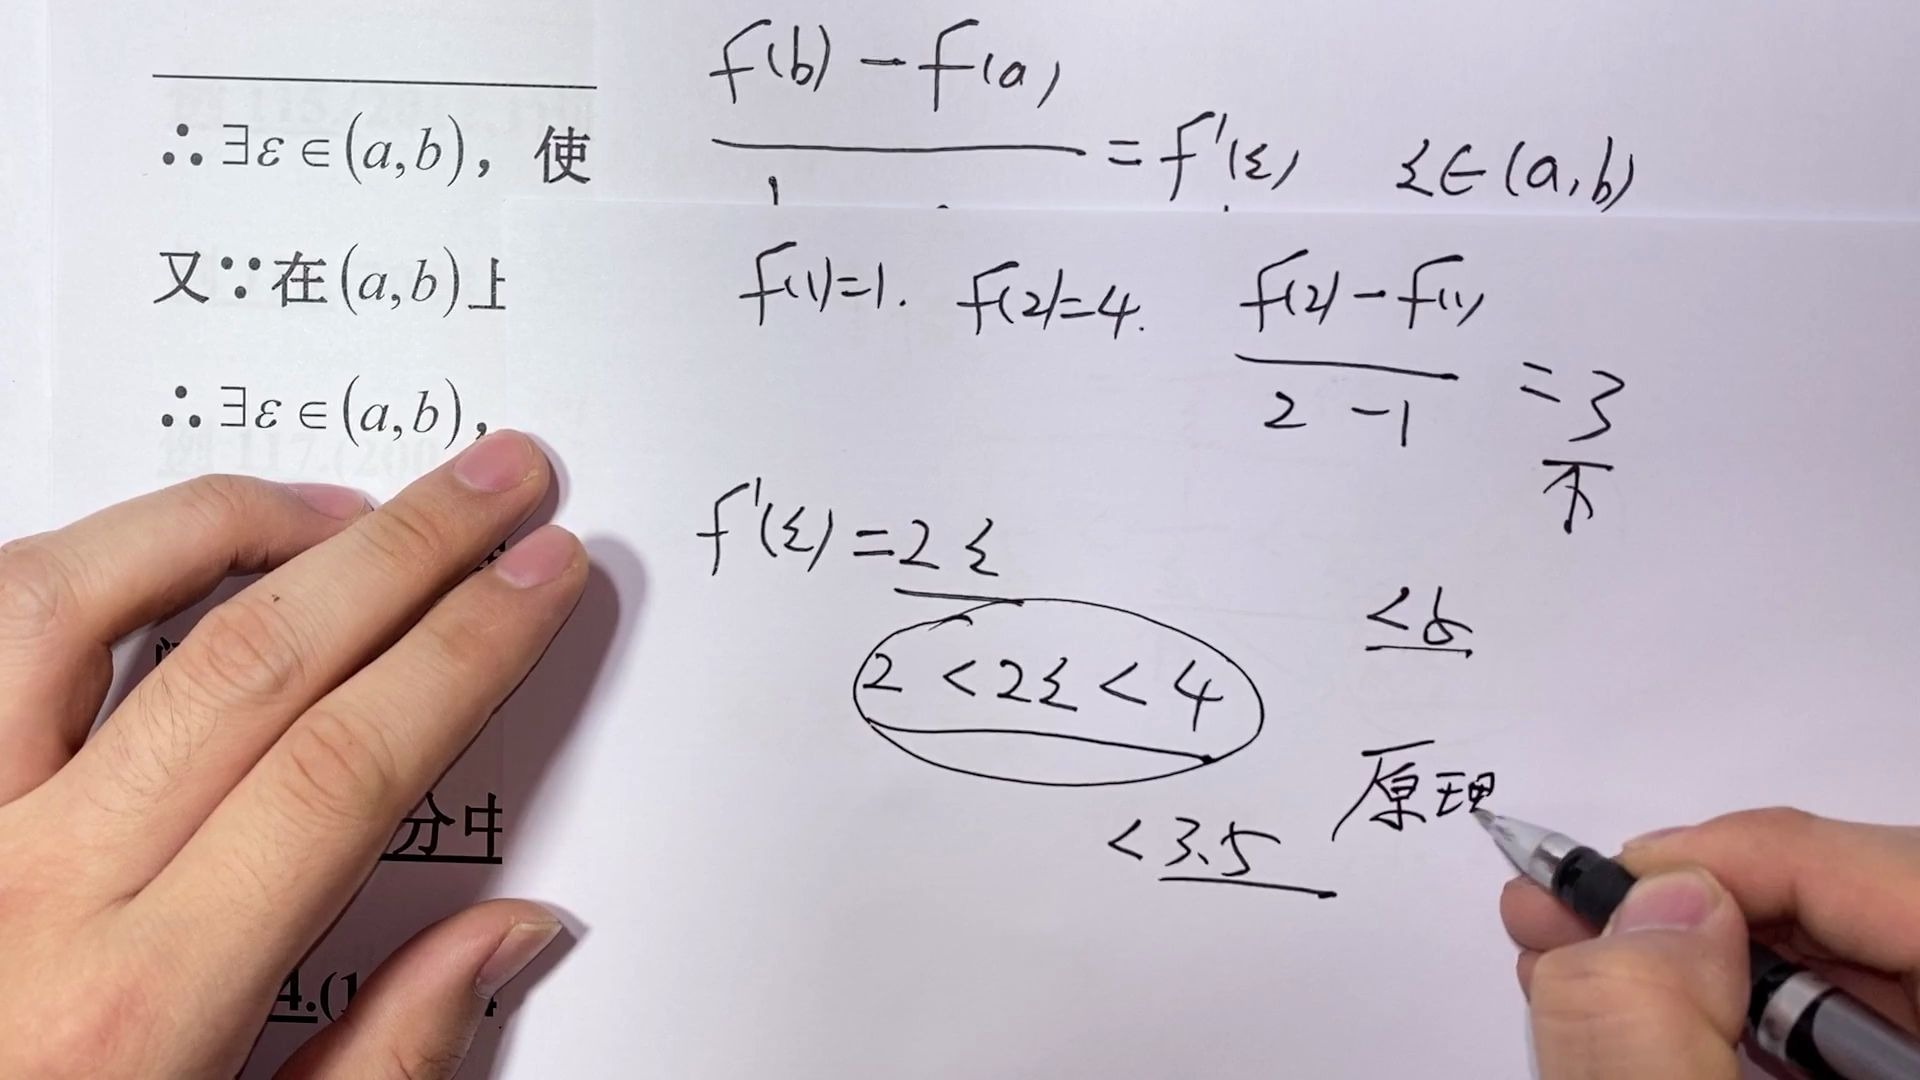 ∴∃ε∈(a,b)，使
又∵在(a,b)上
∴∃ε∈(a,b)，
分中
4.(1
f(b)-f(a)
= f'(ξ) ξ∈(a,b)
f(1)=1. f(2)=4.
f(2)-f(1)
2 -1
= 3
不
f'(ξ)=2ξ
<6
2<2ξ<4
<3.5
原理